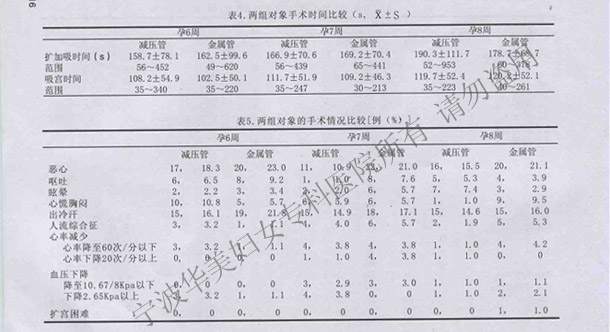 表4.两组对象手术时间比较（s, X̄±S）
孕6周 孕7周 孕8周
减压管 金属管 减压管 金属管 减压管 金属管
扩加吸时间(s) 158.7±78.1 162.5±99.6 166.9±70.6 169.2±70.4 190.3±111.7 178.7±68.7
范围 56～452 49～620 56～439 65～441 52～953 60～378
吸宫时间 108.2±54.9 102.5±50.1 111.7±51.9 109.2±46.3 119.7±52.4 120.2±52.1
范围 35～340 35～220 35～247 30～213 35～223 40～261
表5.两组对象的手术情况比较[例（%）]
孕6周 孕7周 孕8周
减压管 金属管 减压管 金属管 减压管 金属管
恶心 17, 18.3 20, 23.0 11, 10.9 22, 21.0 16, 15.5 20, 21.1
呕吐 6, 6.5 8, 9.2 1, 1.0 8, 7.6 5, 5.3 4, 3.9
眩晕 2, 2.2 3, 3.4 2, 2.0 6, 5.7 7, 7.4 3, 2.9
心慌胸闷 10, 10.8 5, 5.7 6, 5.9 6, 5.7 1, 1.0 9, 9.5
出冷汗 15, 16.1 19, 21.8 15, 14.9 18, 17.1 15, 14.6 15, 16.0
人流综合征 3, 3.2 1, 1.1 4, 4.0 6, 5.7 2, 1.9 5, 5.3
心率减少
心率降至60次/分以下 3, 3.2 1.1 4, 3.8 4, 3.8 1, 1.0 4, 4.2
心率下降20次/分以上 0, 0. 0, 0. 1, 1.0 4, 3.8 1, 1.0 0, 0.
血压下降
降至10.67/8Kpa以下 0, 0. 0, 0. 3, 2.9 3, 3.0 1, 1.0 1, 1.1
下降2.65Kpa以上 3.2 1, 1.1 4, 3.8 0, 0. 1, 1.0 2, 2.1
扩宫困难 0, 0. 0, 0. 0, 0. 0, 0. 0, 0. 1, 1.0
宁波华美妇女专科医院所有 请勿盗用